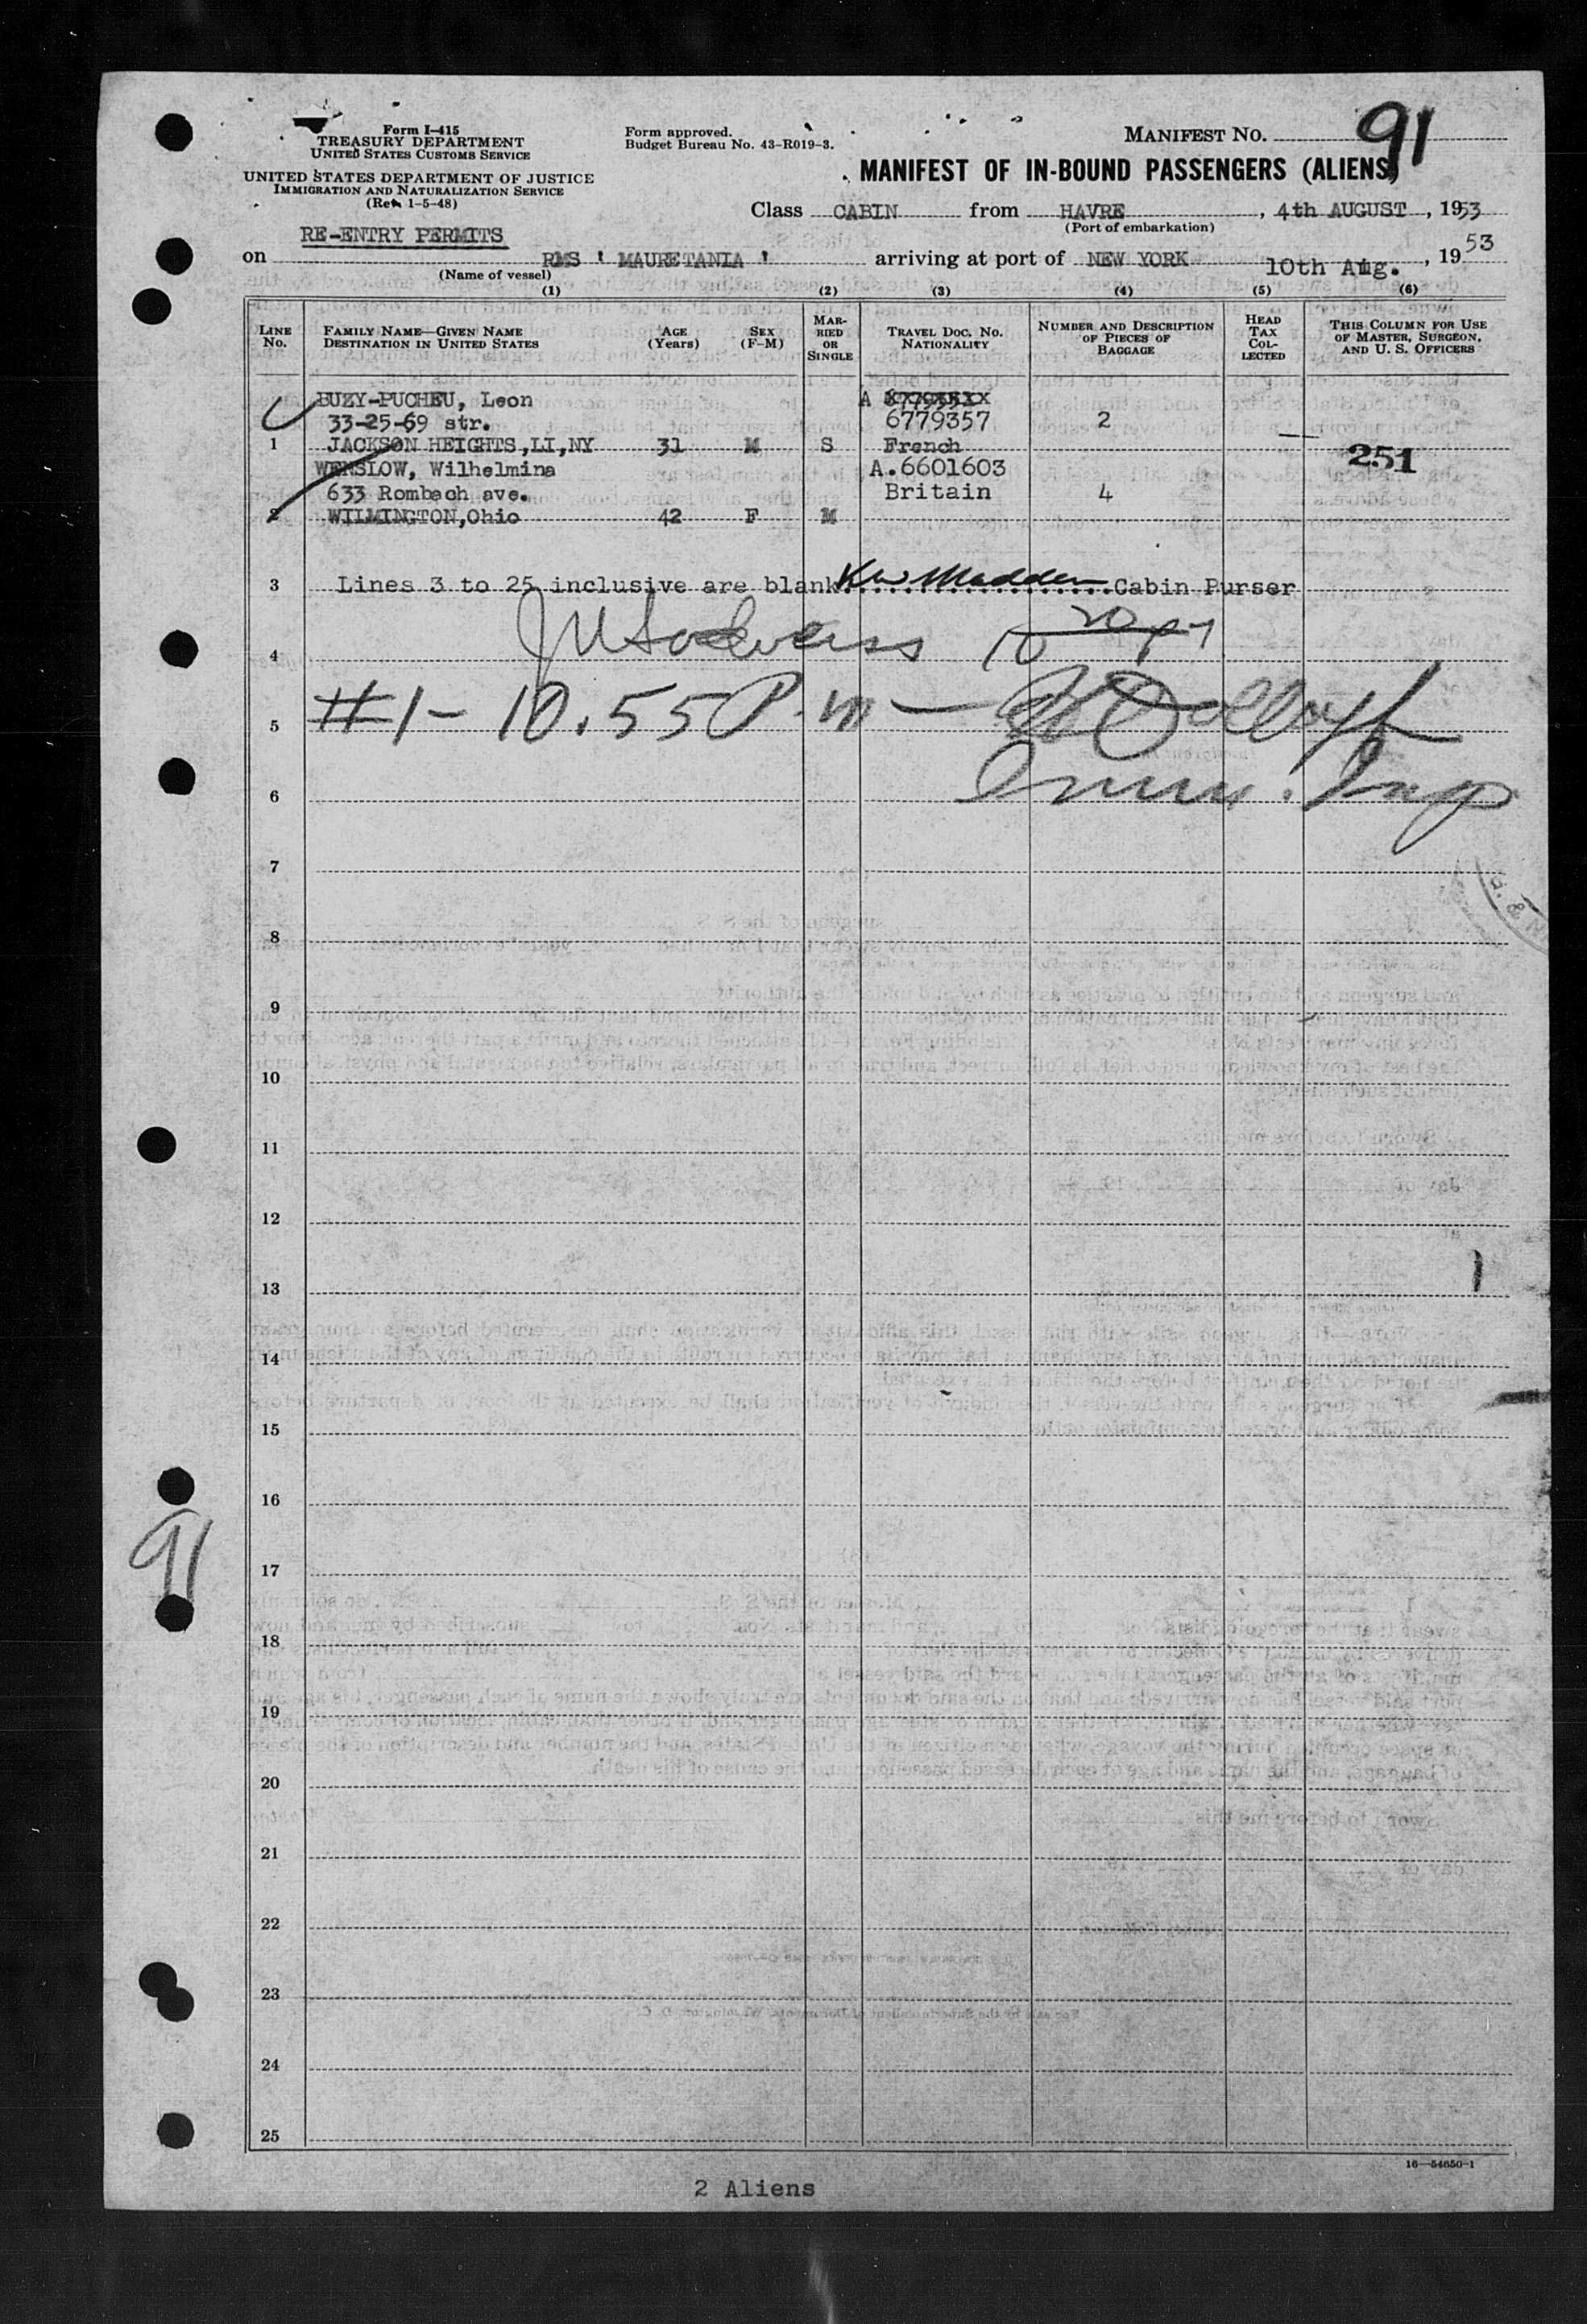 Form I-415
TREASURY DEPARTMENT
UNITED STATES CUSTOMS SERVICE
UNITED STATES DEPARTMENT OF JUSTICE
IMMIGRATION AND NATURALIZATION SERVICE
(Rev. 1-5-48)
Form approved.
Budget Bureau No. 43-R019-3.
MANIFEST NO. 91
MANIFEST OF IN-BOUND PASSENGERS (ALIENS)
Class CABIN from HAVRE, 4th AUGUST, 1953
(Port of embarkation)
RE-ENTRY PERMITS
on RMS ' MAURETANIA ' arriving at port of NEW YORK 10th Aug., 1953
(Name of vessel)
(1) (2) (3) (4) (5) (6)
LINE No.
FAMILY NAME—GIVEN NAME
DESTINATION IN UNITED STATES
AGE (Years)
SEX (F-M)
MARRIED OR SINGLE
TRAVEL DOC. NO. NATIONALITY
NUMBER AND DESCRIPTION OF PIECES OF BAGGAGE
HEAD TAX COLLECTED
THIS COLUMN FOR USE OF MASTER, SURGEON, AND U. S. OFFICERS
BUZY-PUCHEU, Leon A
33-25-69 str. 6779357 2
1 JACKSON HEIGHTS,LI,NY 31 M S French 251
WENSLOW, Wilhelmina A.6601603
633 Rombach ave. Britain 4
2 WILMINGTON,Ohio 42 F M
3 Lines 3 to 25 inclusive are blank Cabin Purser
4
5 #1- 10.55 P.m -
6 Imm. Insp
7
8
9
10
11
12
13
14
15
16
91
17
18
19
20
21
22
23
24
25
16—54650-1
2 Aliens